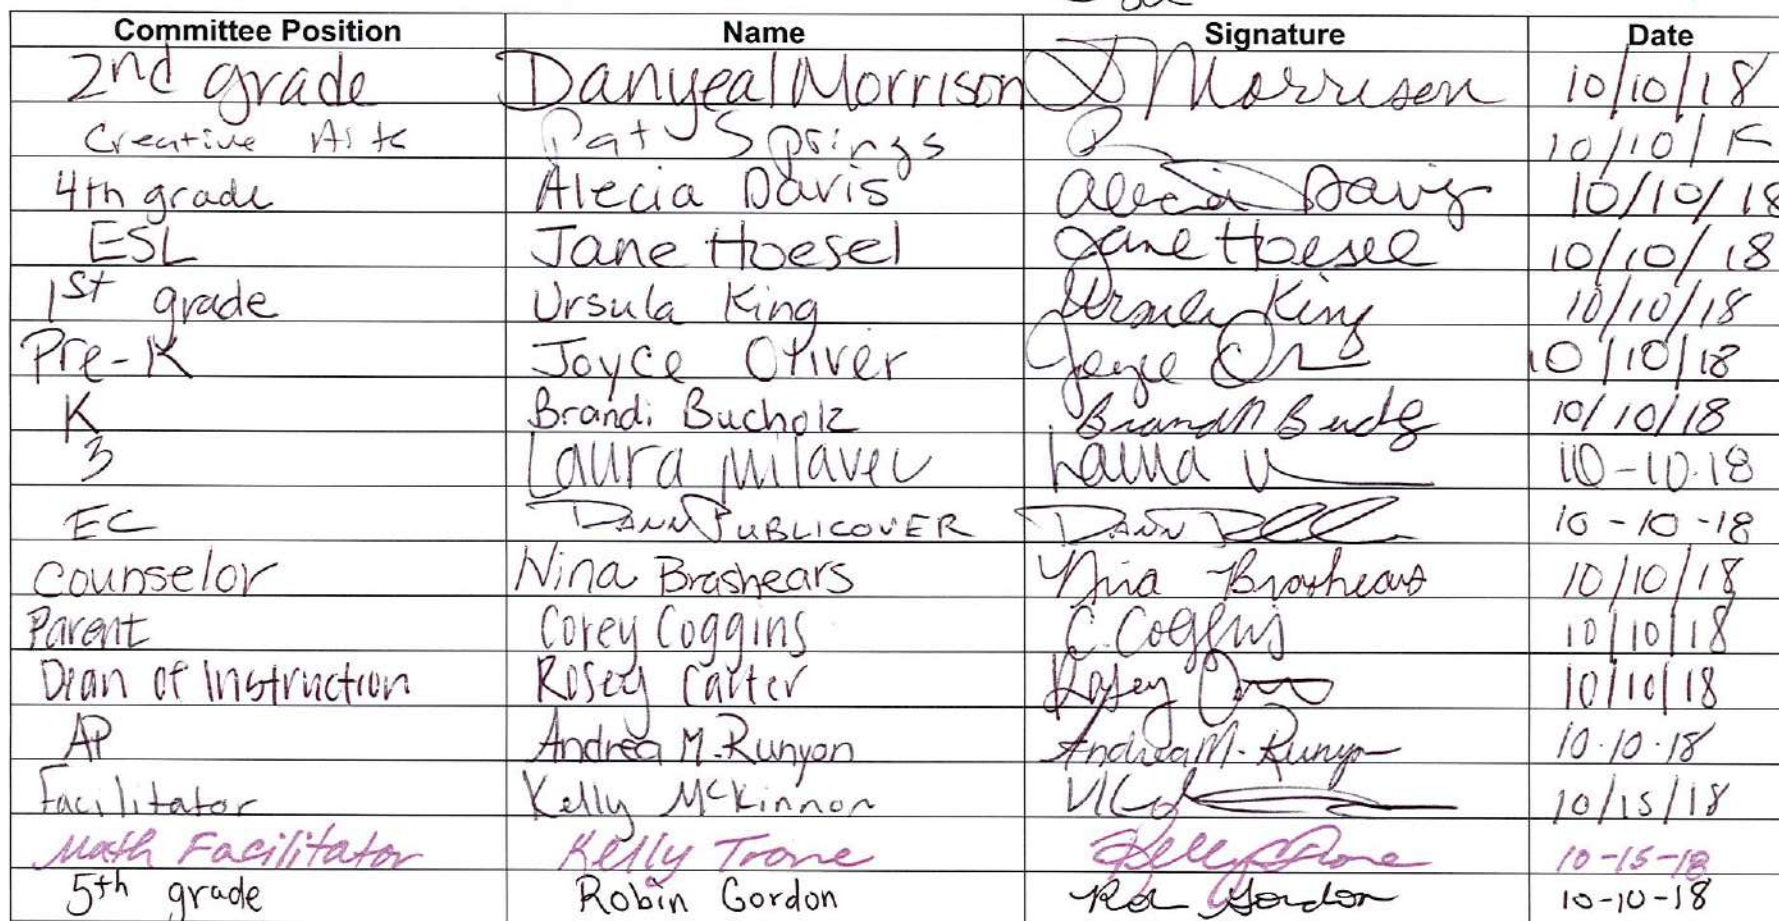 Committee Position Name Signature Date
2nd grade Danyeal Morrison D Morrison 10/10/18
Creative Arts Pat Springs 10/10/18
4th grade Alecia Davis Alecia Davis 10/10/18
ESL Jane Hoesel Jane Hoesel 10/10/18
1st grade Ursula King Ursula King 10/10/18
Pre-K Joyce Oliver Joyce 10/10/18
K Brandi Bucholz Brandi 10/10/18
3 Laura Milavec Laura 10-10-18
EC DANN PUBLICOVER DANN 10-10-18
Counselor Nina Brashears Nina Brashears 10/10/18
Parent Corey Coggins C. Coggins 10/10/18
Dean of Instruction Rosey Carter Rosey 10/10/18
AP Andrea M. Runyon Andrea M. Runyon 10.10.18
Facilitator Kelly McKinnon 10/15/18
Math Facilitator Kelly Trone Kelly Trone 10-15-18
5th grade Robin Gordon Gordon 10-10-18